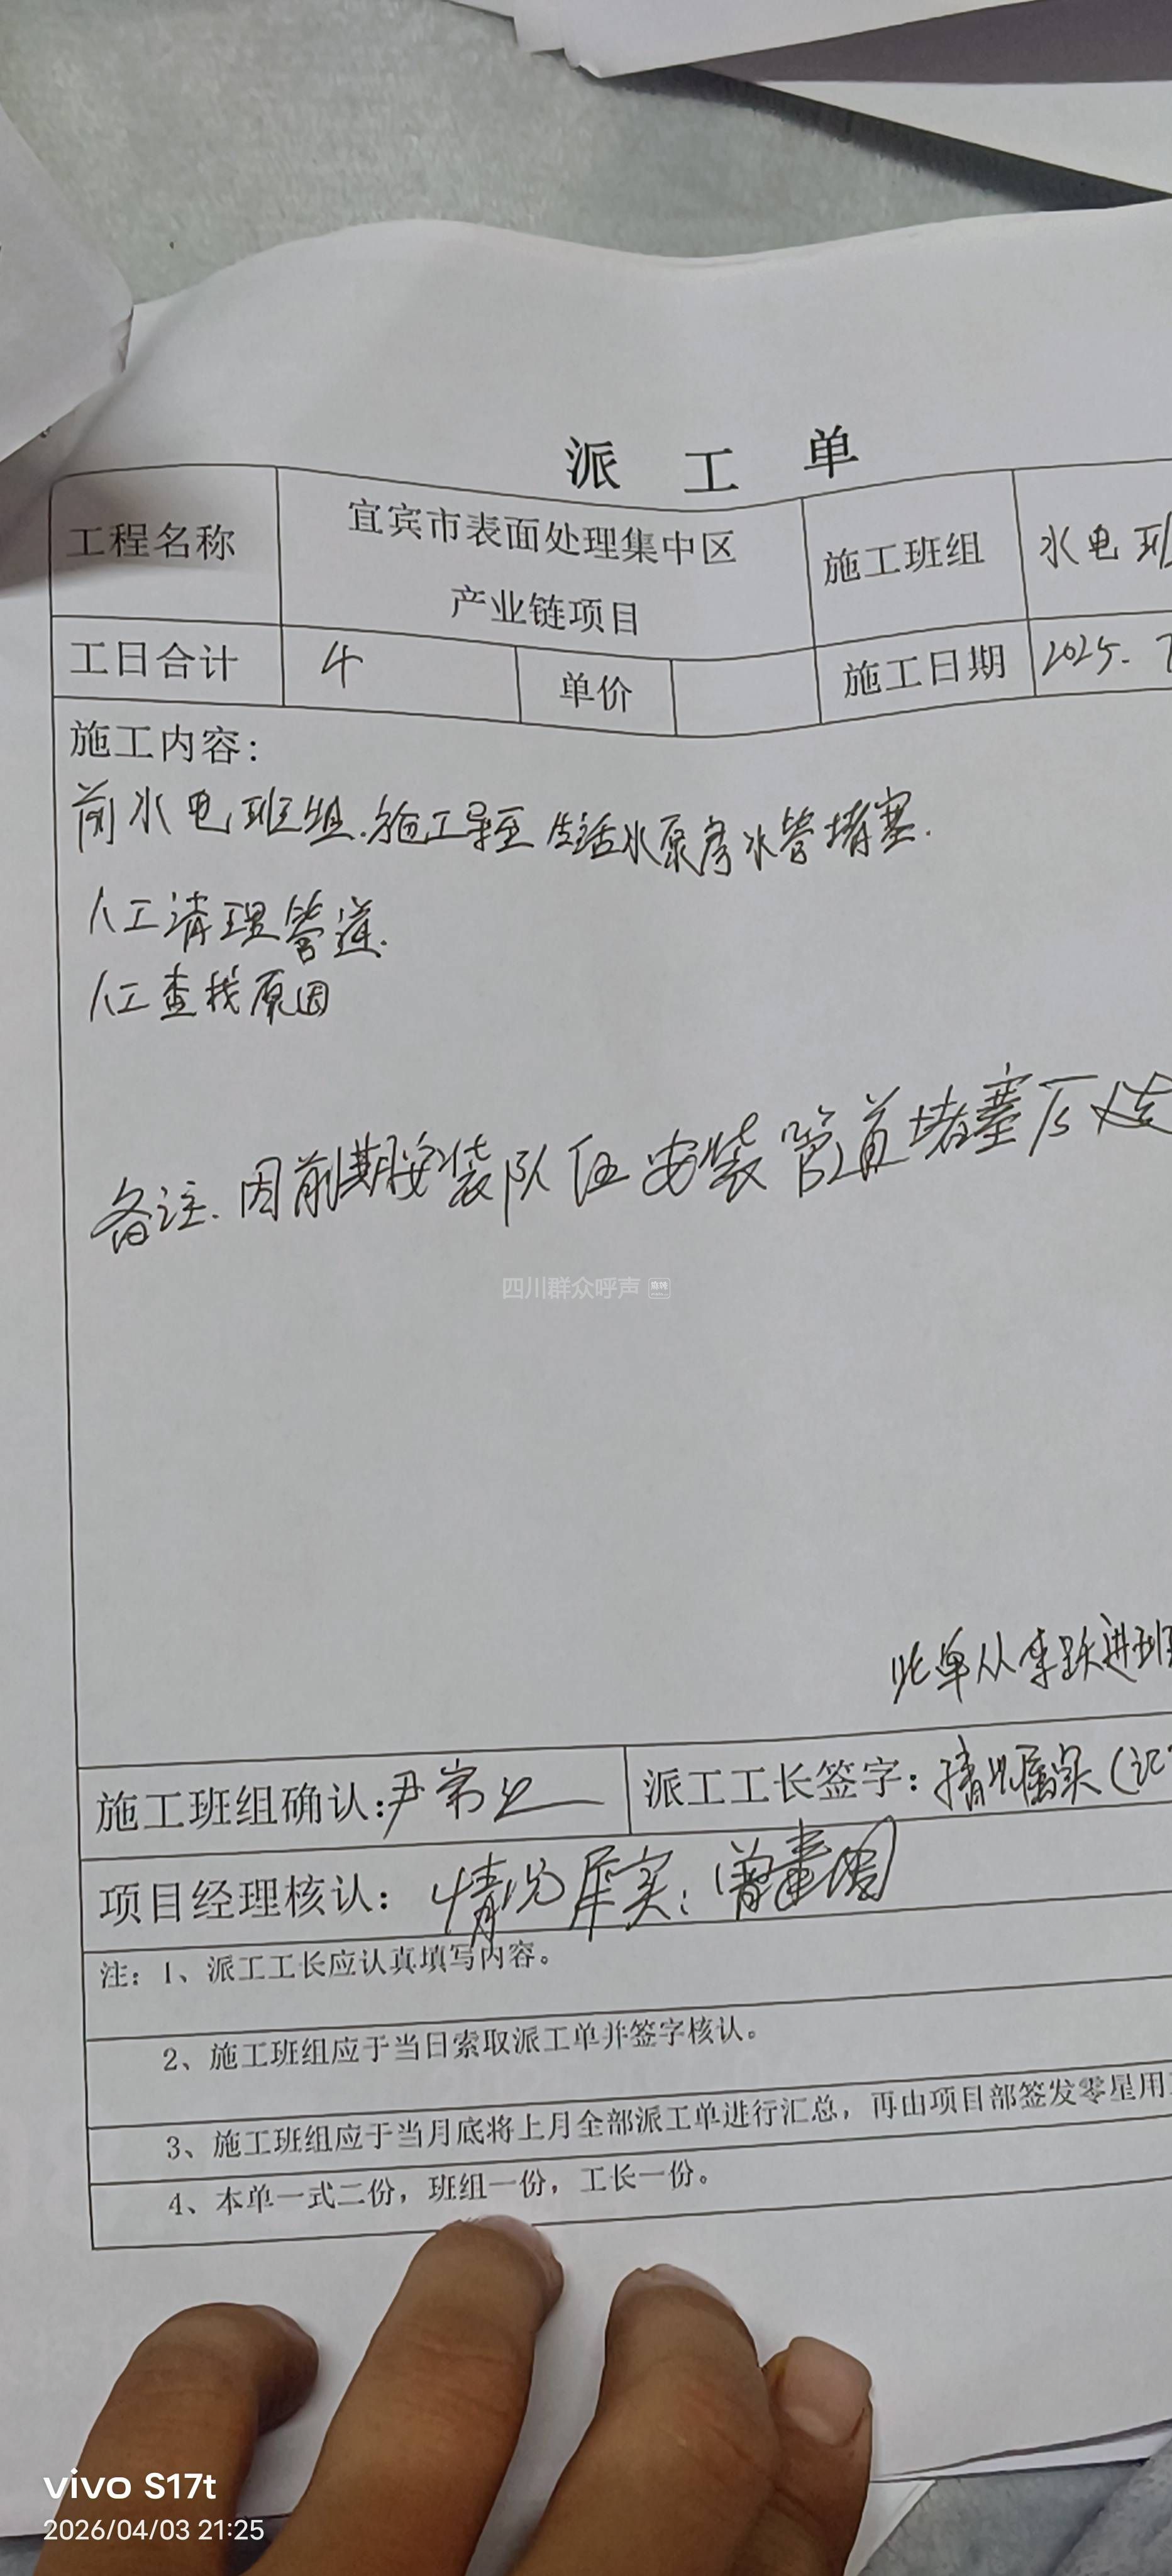 派 工 单
工程名称 宜宾市表面处理集中区 产业链项目 施工班组 水电班
工日合计 4 单价 施工日期 2025.
施工内容:
前水电班组.施工导至生活水泵房水管堵塞.
人工清理管道.
人工查找原因
备注.因前期安装队伍安装管道堵塞
四川群众呼声
此单从李跃进班
施工班组确认: 尹常 派工工长签字: 情况属实(记
项目经理核认: 情况属实:曾
注: 1、派工工长应认真填写内容。
2、施工班组应于当日索取派工单并签字核认。
3、施工班组应于当月底将上月全部派工单进行汇总,再由项目部签发零星用
4、本单一式二份,班组一份,工长一份。
vivo S17t
2026/04/03 21:25